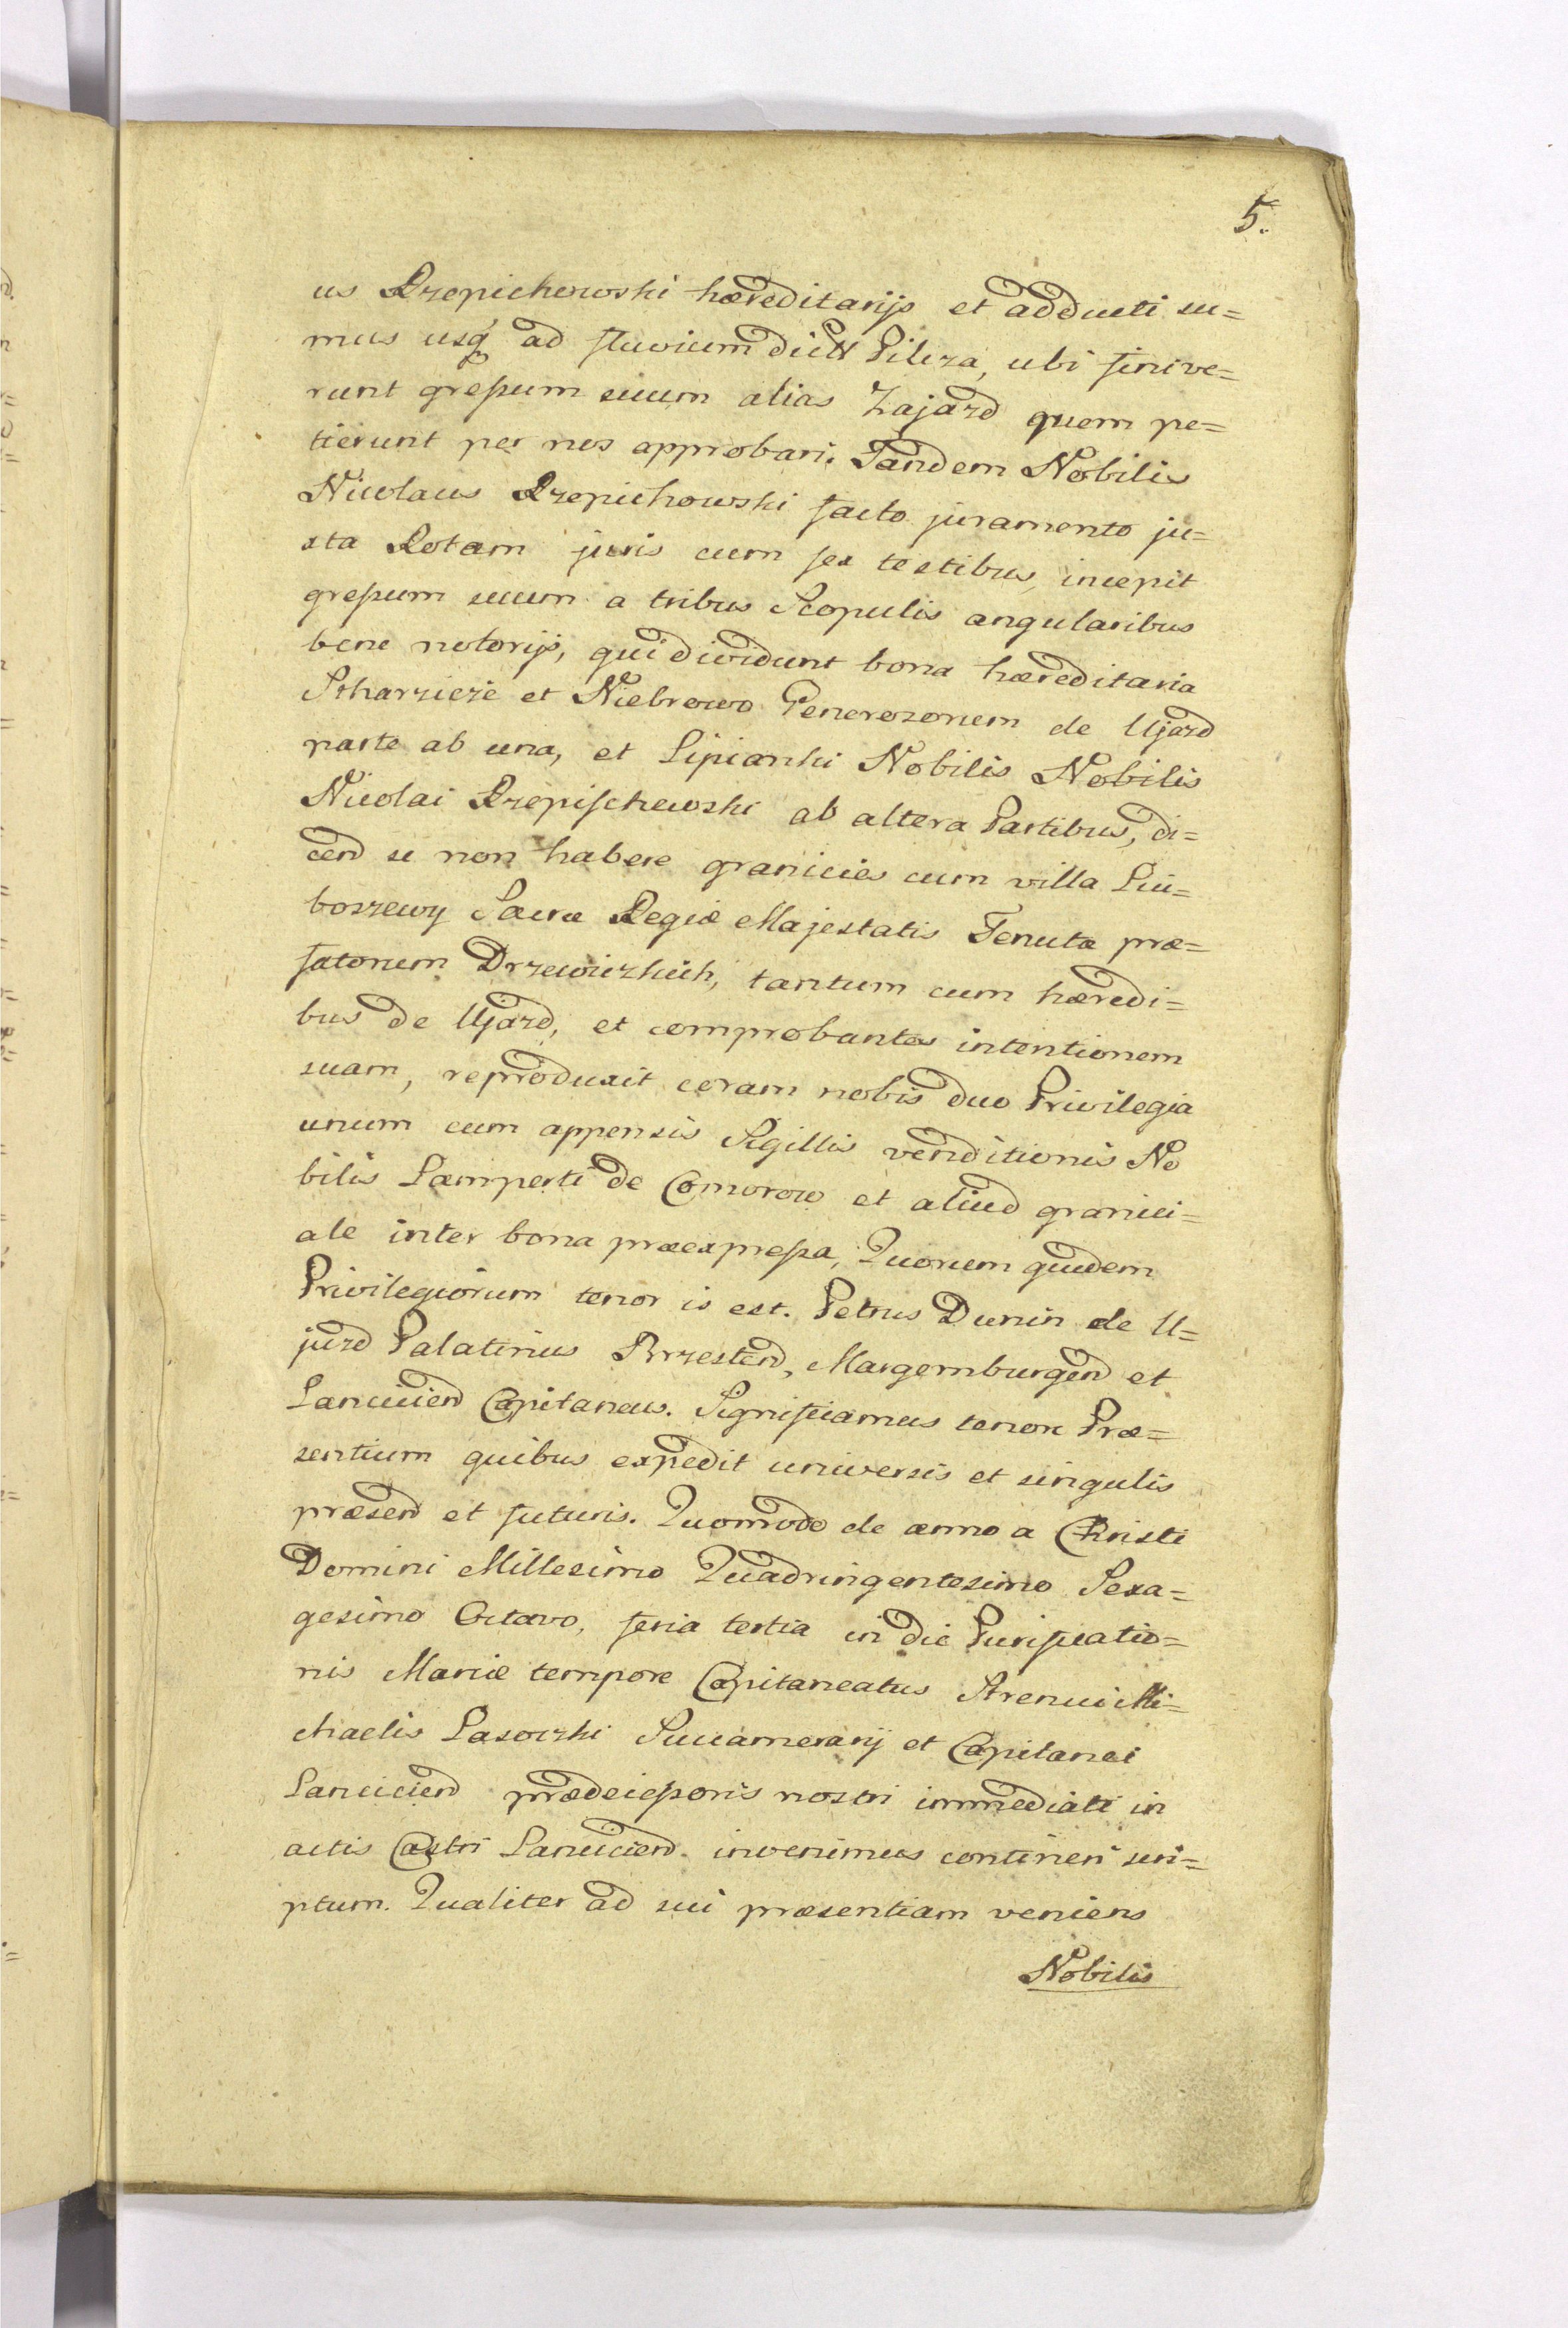 5.
us Rzepichowski hæreditarijs et adducti su=
mus usq; ad fluvium dictt Pilcza, ubi finive=
runt greſsum suum alias Zajazd quem pe=
tierunt per nos approbari. Tandem Nobilis
Nicolaus Rzepichowski facto juramento ju=
xta Rotam juris cum sex testibus, incepit
greſsum suum a tribus Scopulis angularibus
bene notorijs, qui dividunt bona hæreditaria
Skarzicze et Niebrowo Generozorum de Ujazd
parte ab una, et Lipianki Nobilis Nobilis
Nicolai Rzepiſchewski ab altera Partibus, di=
cend se non habere granicies cum villa Liu=
boszewy Sacræ Regiæ Majestatis Tenutæ præ=
fatorum Drzewiczkich, tantum cum hæredi=
bus de Ujazd, et comprobantes intentionem
suam, reproduxit coram nobis duo Privilegia
unum cum appensis Sigillis venditionis No
bilis Lamperti de Comorow et aliud granici=
ale inter bona præexpreſsa, Quorum quidem
Privilegiorum tenor is est. Petrus Dunin de U=
jazd Palatinus Brzestend, Margemburgend et
Lanciciend Capitaneus. Significamus tenore Præ=
sentium quibus expedit universis et singulis
præsend et futuris. Quomodo de anno a Christi
Domini Millesimo Quadringentesimo Sexa=
gesimo Octavo, feria tertia in die Purificatio=
nis Mariæ tempore Capitaneatus Strenui Mi=
chaelis Lasoczki Succamerarij et Capitanei
Lanciciend prædeceſsoris nostri immediati in
actis Castri Lanciciend. invenimus contineri scri=
ptum. Qualiter ad sui præsentiam veniens
Nobilis